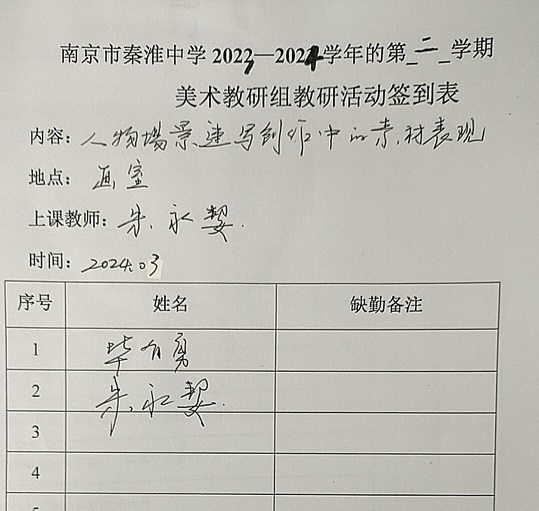 南京市秦淮中学 2023—2024学年的第_二_学期
美术教研组教研活动签到表
内容：人物场景速写创作中的素材表现
地点：画室
上课教师：朱永契.
时间：2024.03
序号 姓名 缺勤备注
1 毕有勇
2 朱永契.
3
4